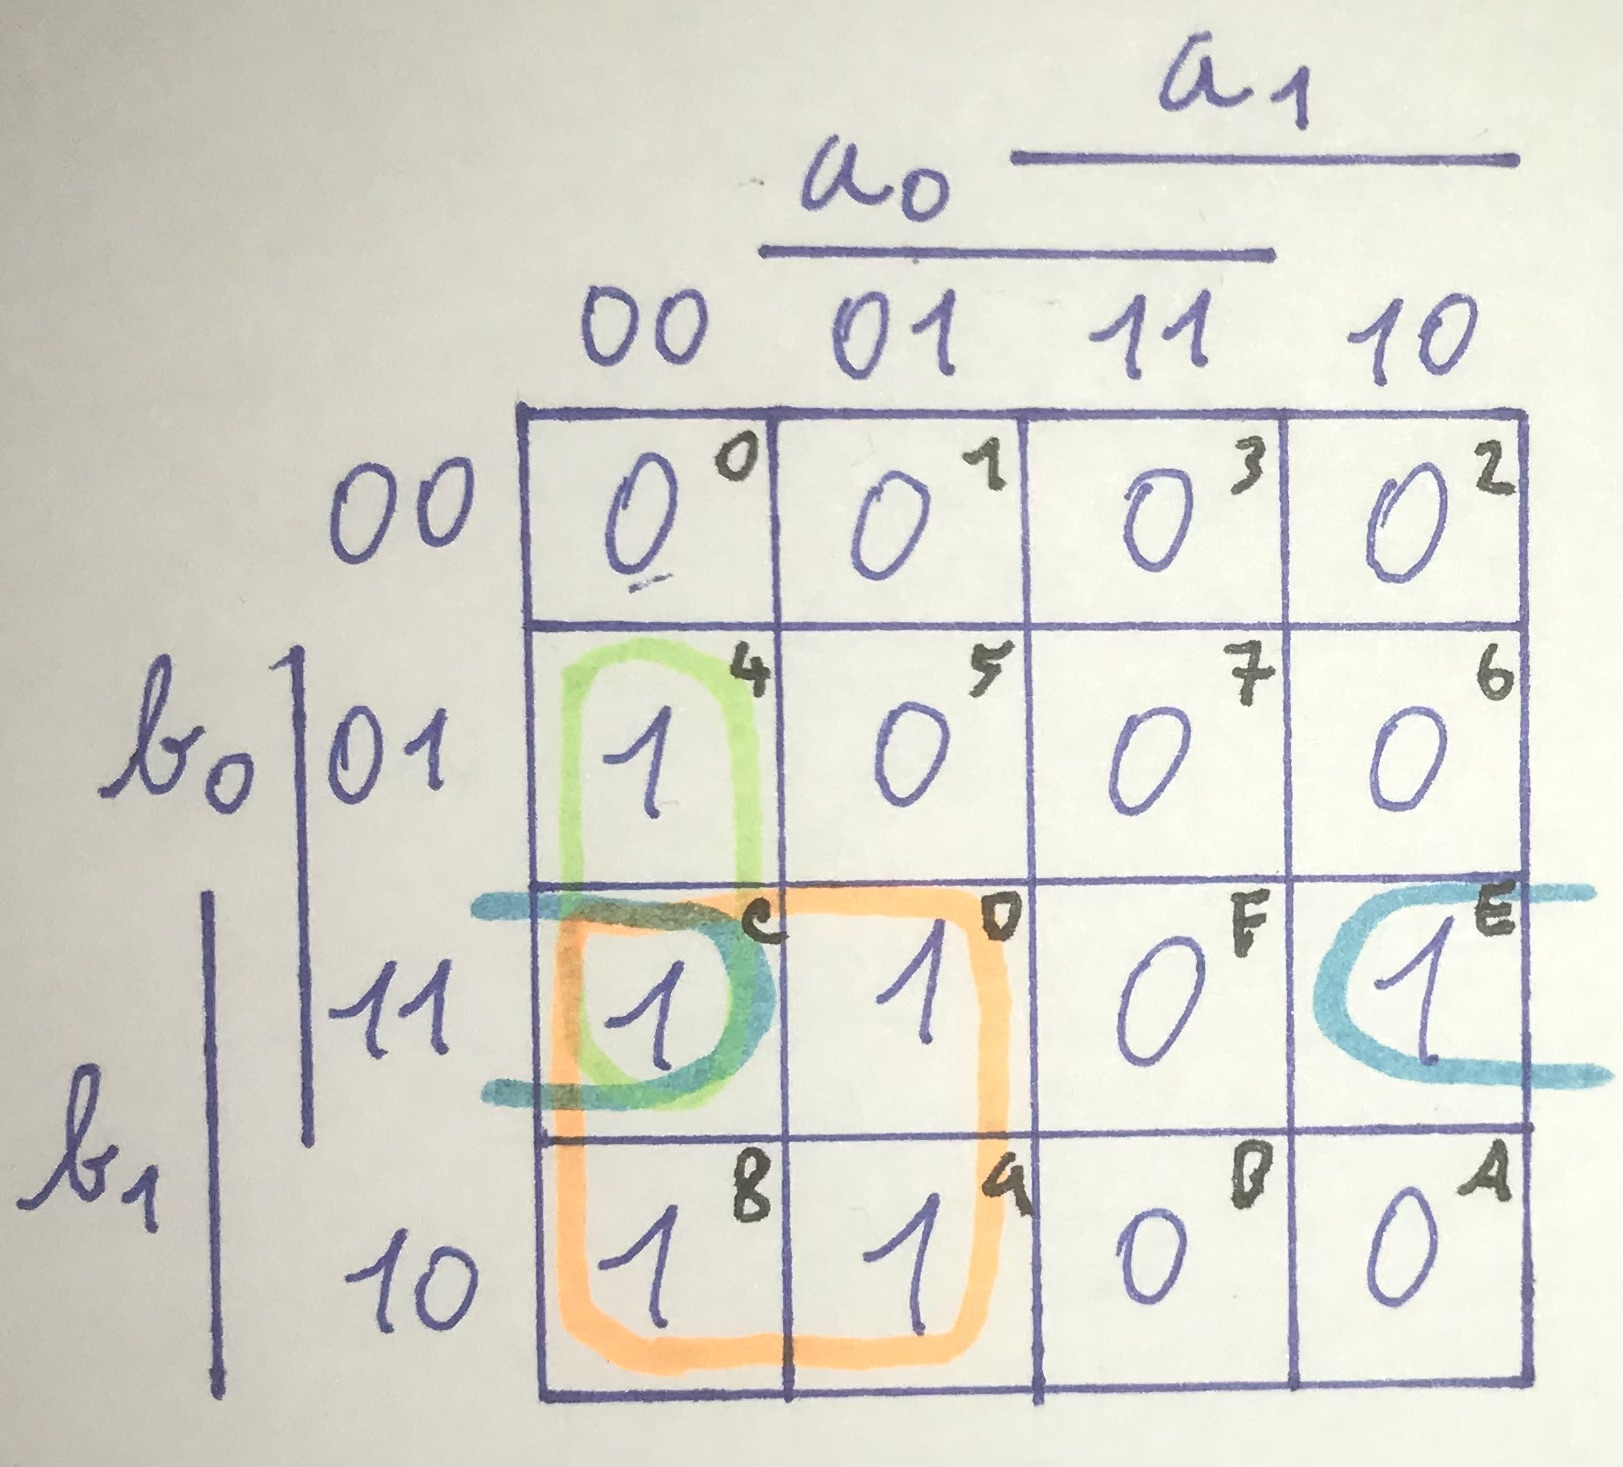 a1
a0
00 01 11 10
00 0 0 0 1 0 3 0 2
b0 01 1 4 0 5 0 7 0 6
11 1 C 1 D 0 F 1 E
b1
10 1 8 1 9 0 B 0 A